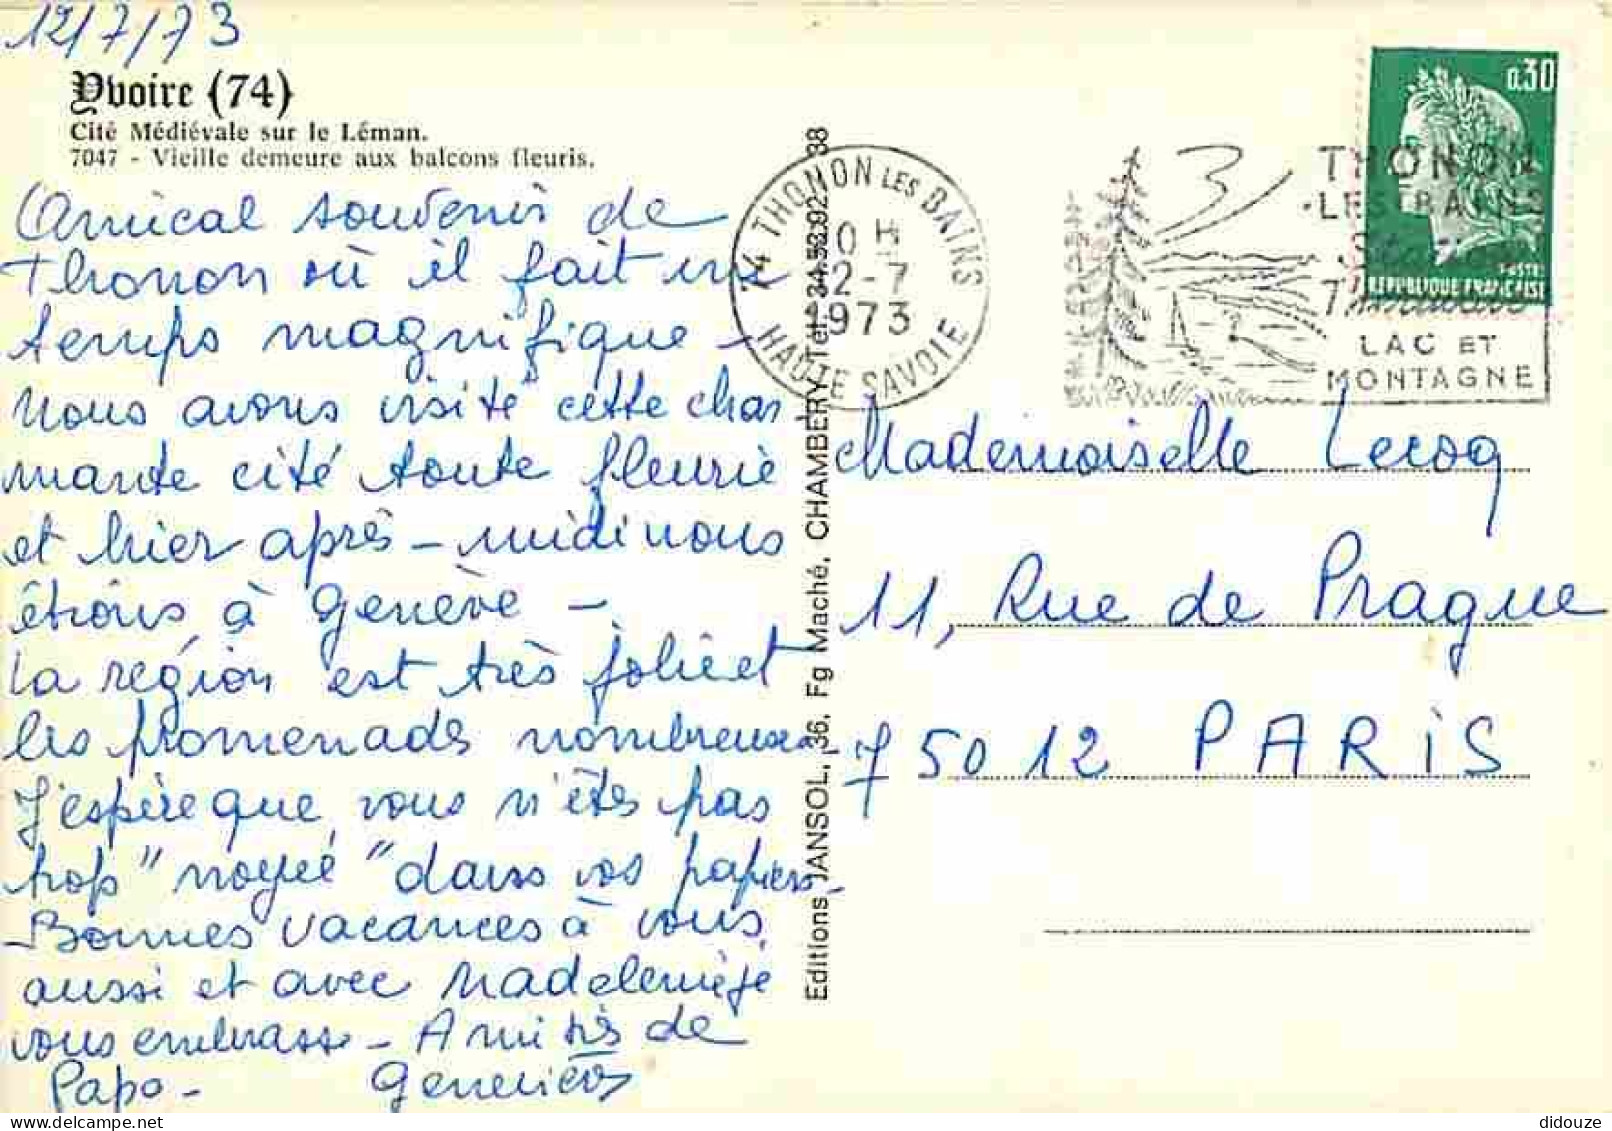 12/7/73
Yvoire (74)
Cité Médiévale sur le Léman.
7047 - Vieille demeure aux balcons fleuris.
Amical souvenir de
Thonon où il fait un
temps magnifique -
Nous avons visité cette char
mante cité toute fleurie
et hier après-midi nous
étions à Genève -
La région est très jolie et
les promenades nombreuses -
J'espère que vous n'êtes pas
trop "noyée" dans vos papiers -
Bonnes vacances à vous
aussi et avec Madeleine je
vous embrasse - Amitiés de
Papo - Geneviève
Editions JANSOL, 36, Fg Maché, CHAMBERY Tel 34.52.92 38
74 THONON LES BAINS
10 H
12-7
1973
HAUTE SAVOIE
THONON
LES BAINS
Station
Thermale
LAC ET
MONTAGNE
0.30
POSTES
REPUBLIQUE FRANÇAISE
Mademoiselle Lecoq
11, Rue de Prague
75012 PARIS
didouze